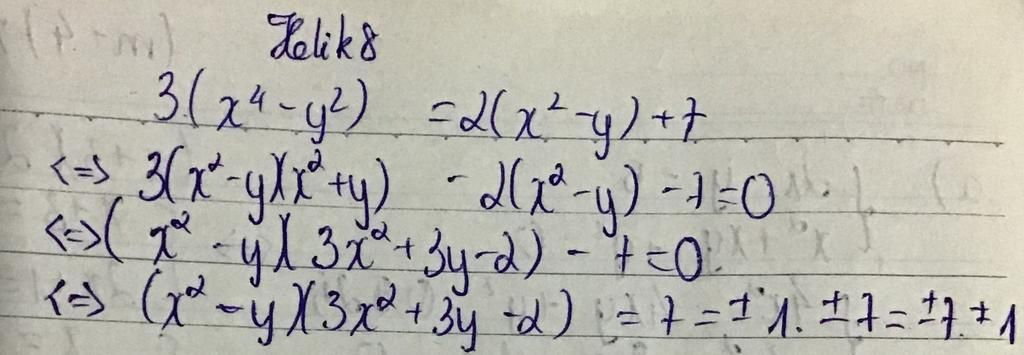 Helik8
3(x⁴-y²) =2(x²-y)+7
<=> 3(x²-y)(x²+y) -2(x²-y) -7=0
<=>(x²-y)(3x²+3y-2) -7=0
<=> (x²-y)(3x²+3y-2) =7=±1.±7=±7.±1